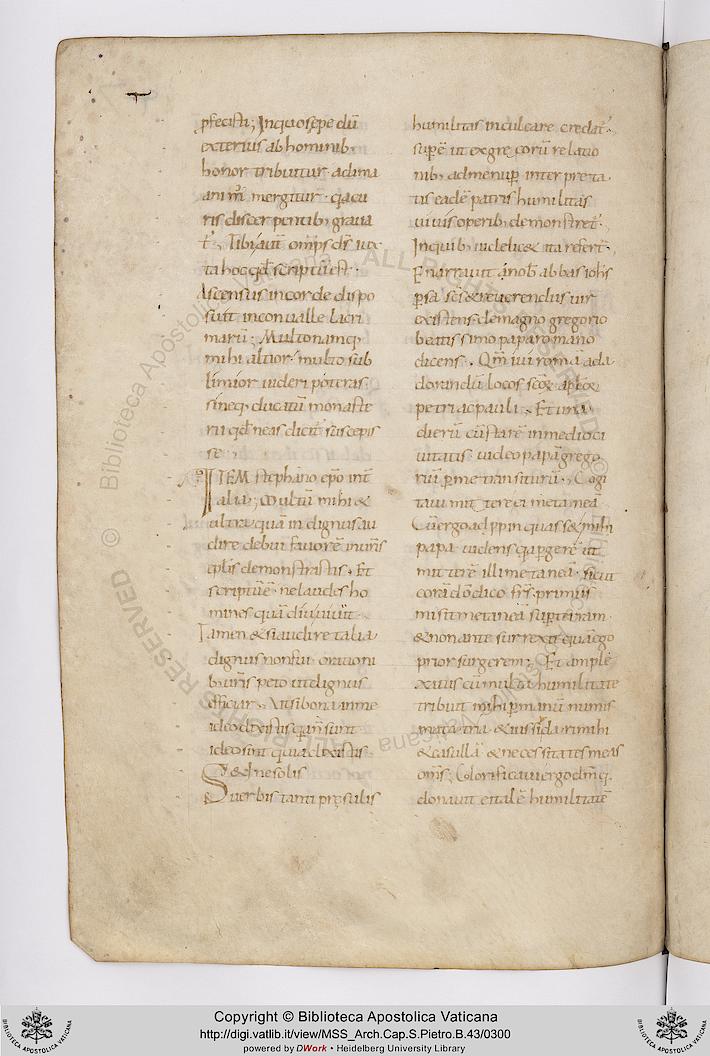 pfecisti; Inquo sepe dū
exterius ab hominib;
honor tribuitur adima
ani mr̄ mergitur · q̄a cu
ris discerpentib; graua
t̄. Tibi aut̄ om̄ps d̄s iux
ta hoc qd̄ scriptū est ·
Ascensus in corde dispo
suit in conualle lacri
marū; Multo namq;
mihi altior · multo sub
limior uideri poteras ·
sineq; ducatū monaste
rii qd̄ neas dicit̄ suscepis
se ·
ITEM stephano ep̄o int̄
alia; Multū mihi &
ultra quā indignus au
dire debui fauorē
ep̄lis demonstrastis · Et
scriptū ē · ne laudes ho
mines quādiu uiuit̄ ·
Tamen & si audire talia
dignus non fui · orationi
b; uris peto ut dignus
efficiar · Ut si bona in me
ideo dixistis q̄a n̄ sunt ·
ideo sint quia dixistis ·
Sed & ne solis
uerbis tanti presulis
humilitas inculcare credat̄ ·
supē ut ex grecorū relatio
nib; ad me nup̄ interpreta
tis eadē patris humilitas
uiuis operib; demonstret̄ ·
In quib; uidelic& ita refert̄ ·
Enarrauit nob abbas iohs
psa scs & reuerendus uir
existens de magno gregorio
beatissimo papa romano
dicens · Qm iui romā ada
dorandū locos scoꝝ aploꝝ
petri ac pauli · Et una
dierū cū starē in medio ci
uitatis uideo papā grego
riū p̄ me transiturū · Cogi
taui mittere ei metaneā
Cū ergo appinquass& mihi
papa uidens q̄a p̄gerē ut
mitterē illi metaneā · sicut
corā dō dico frs · primus
misit metaneā sup terram
& non ante surrexit quā ego
prior surgerem; Et ample
xatus cū multa humilitate
tribuit mihi p̄ manū numis
mata tria · & iussit dari mihi
& casullā & necessitates meas
om̄s; Glorificaui ergo dm̄ q
donauit ei talē humilitatē
Copyright © Biblioteca Apostolica Vaticana
http://digi.vatlib.it/view/MSS_Arch.Cap.S.Pietro.B.43/0300
powered by DWork • Heidelberg University Library